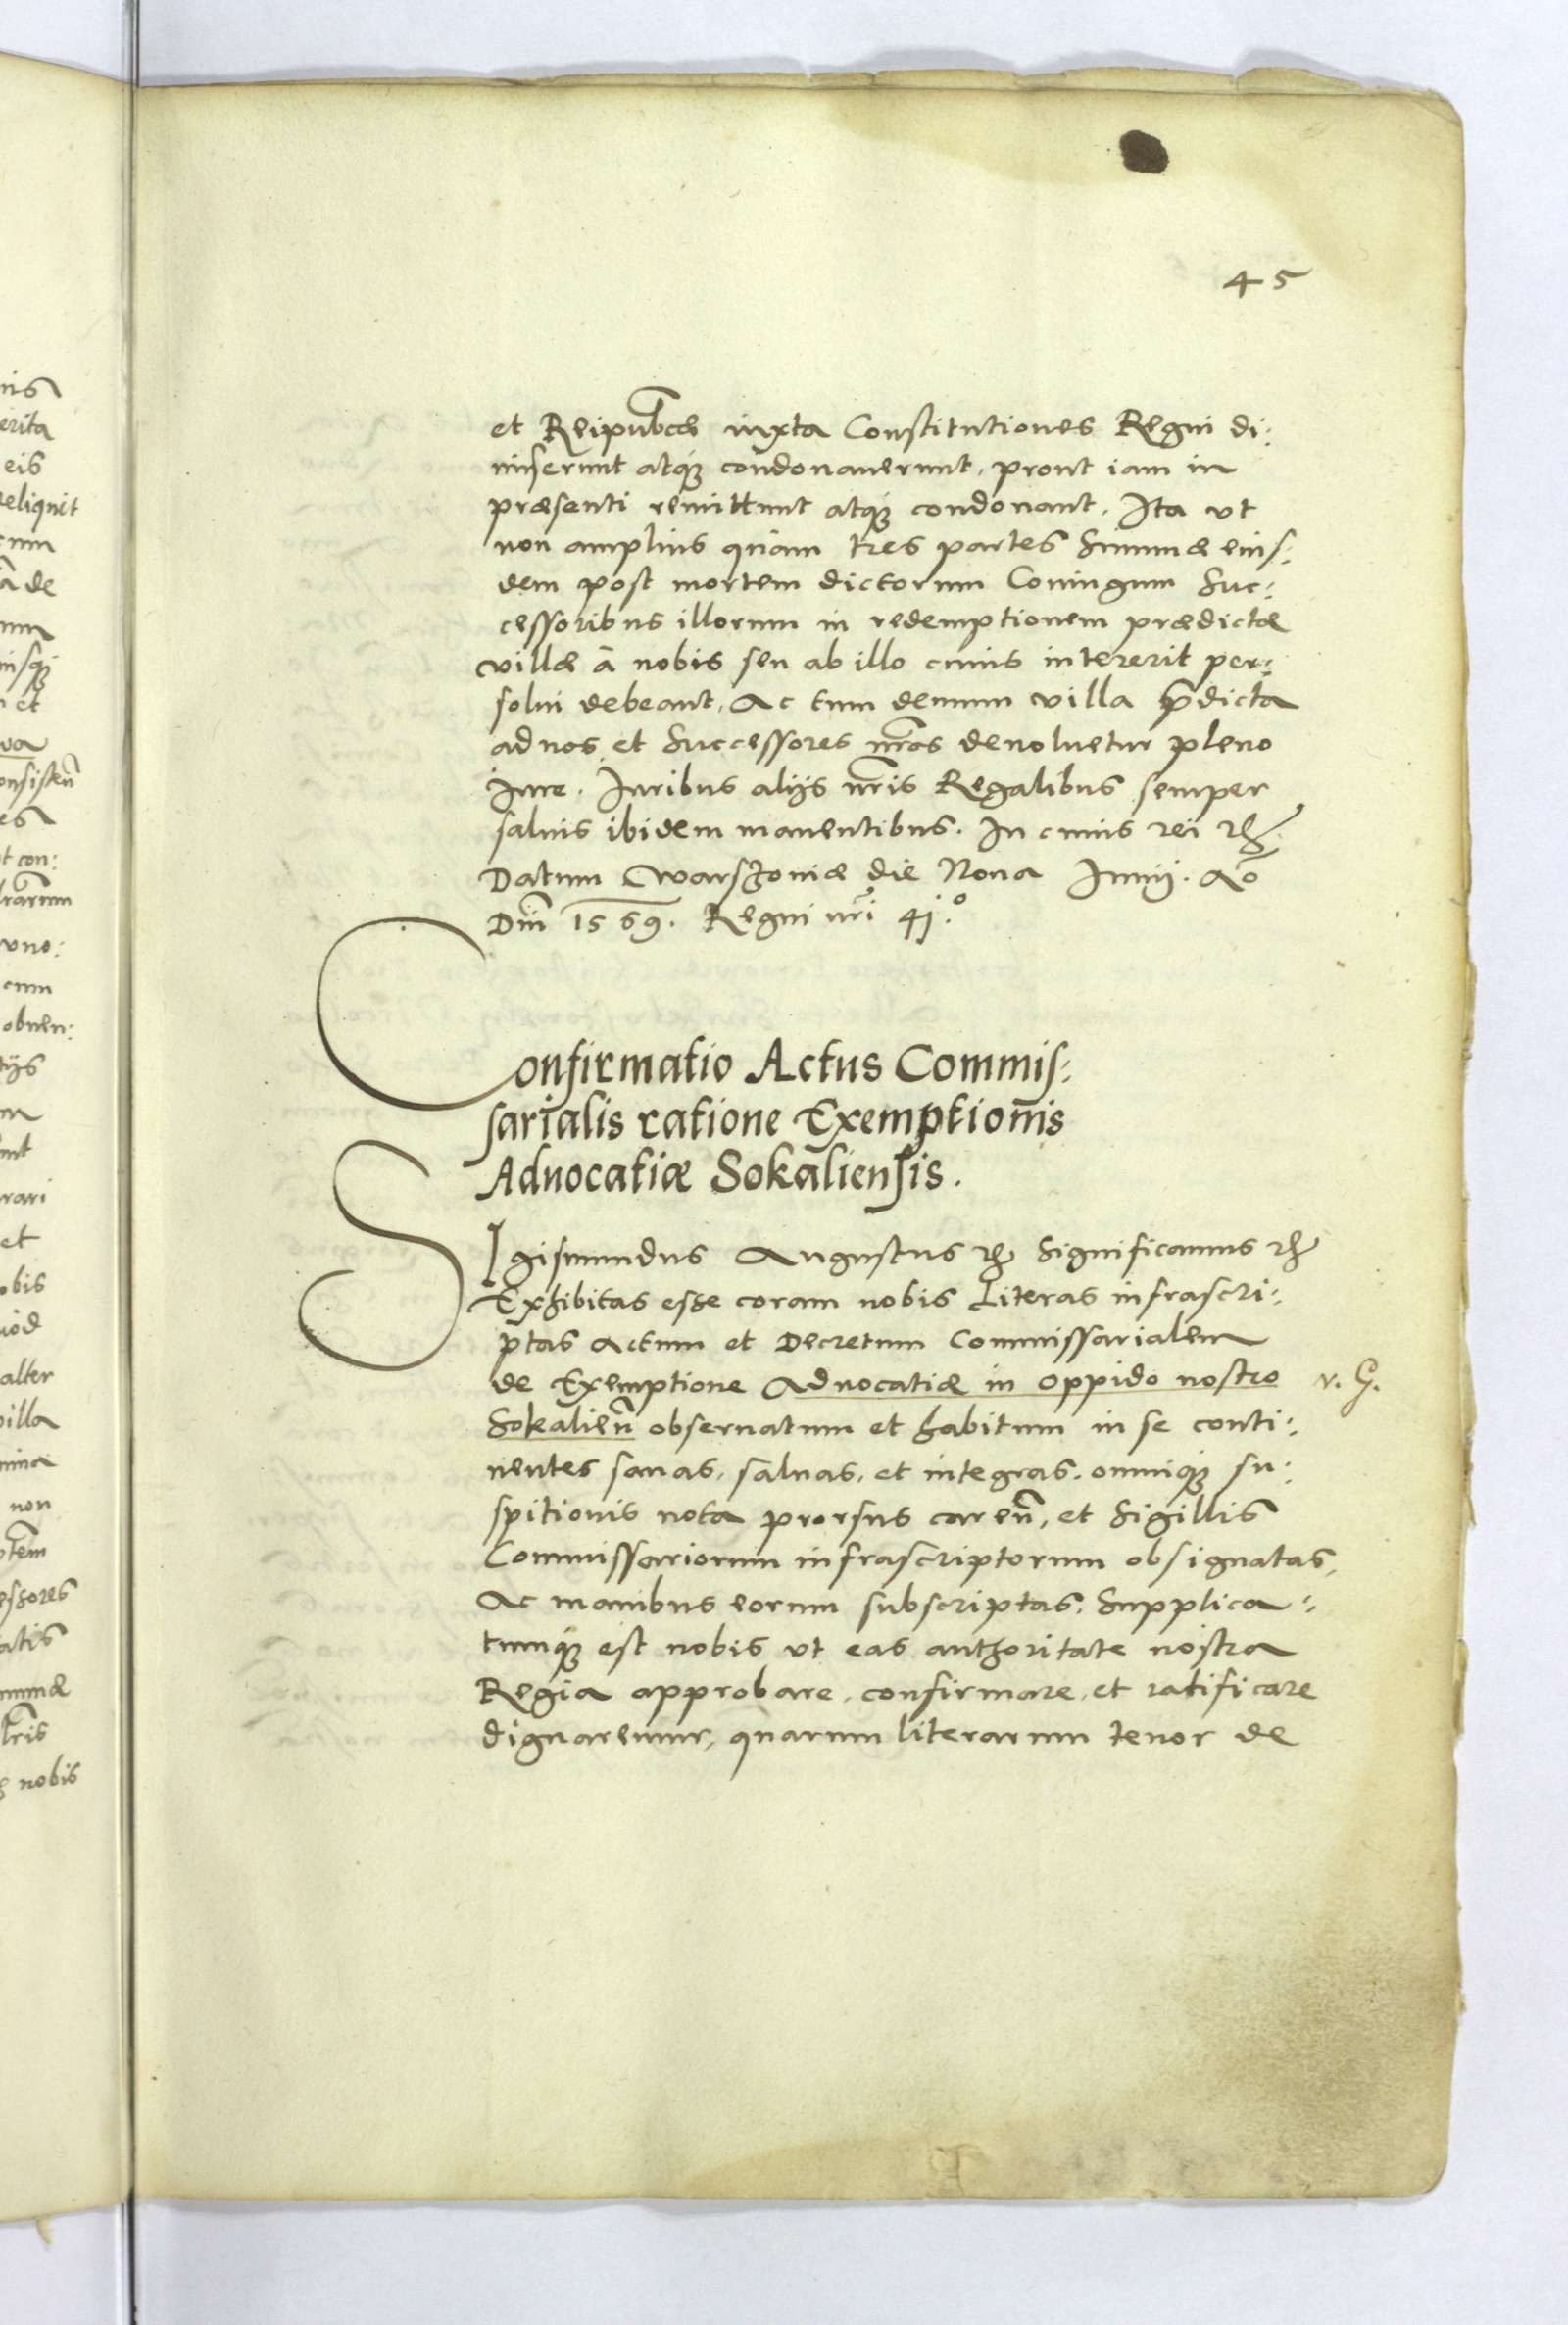 45
et Reipub̃cæ iuxta Constitutiones Regni di:
miserunt atq́ꝫ condonauerunt, prout iam in
præsenti remittunt atq́ꝫ condonant. Ita vt
non amplius quàm tres partes Summæ eius:
dem post mortem dictorum Coniugum Suc:
cessoribus illorum in redemptionem prædictæ
villæ à nobis seu ab illo cuius intererit per:
solui debeant, Ac tum demum villa p̃dicta
ad nos et Successores nr̃os deuoluetur pleno
iure. Iuribus alijs nr̃is Regalibus semper
saluis ibidem manentibus. In cuius rei ꝛc̃.
Datum Warszouiæ die Nona Iunij. Aō
Dnĩ 1569. Regni nr̃i 41.º
Confirmatio Actus Commis:
sarialis ratione Exemptionis
Aduocatiæ Sokaliensis.
SIgismundus Augustus ꝛc̃ Significamus ꝛc̃
Exhibitas esse coram nobis Literas infrascri:
ptas Actum et Decretum Commissarialem
de Exemptione Aduocatiæ in oppido nostro v. G.
Sokalien̄ obseruatum et habitum in se conti:
nentes sanas, saluas, et integras, omniq́ꝫ su:
spitionis nota prorsus caren̄, et Sigillis
Commissariorum infrascriptorum obsignatas,
Ac manibus eorum subscriptas. Supplica:
tumq́ꝫ est nobis vt eas authoritate nostra
Regia approbare, confirmare, et ratificare
dignaremur, quarum literarum tenor de